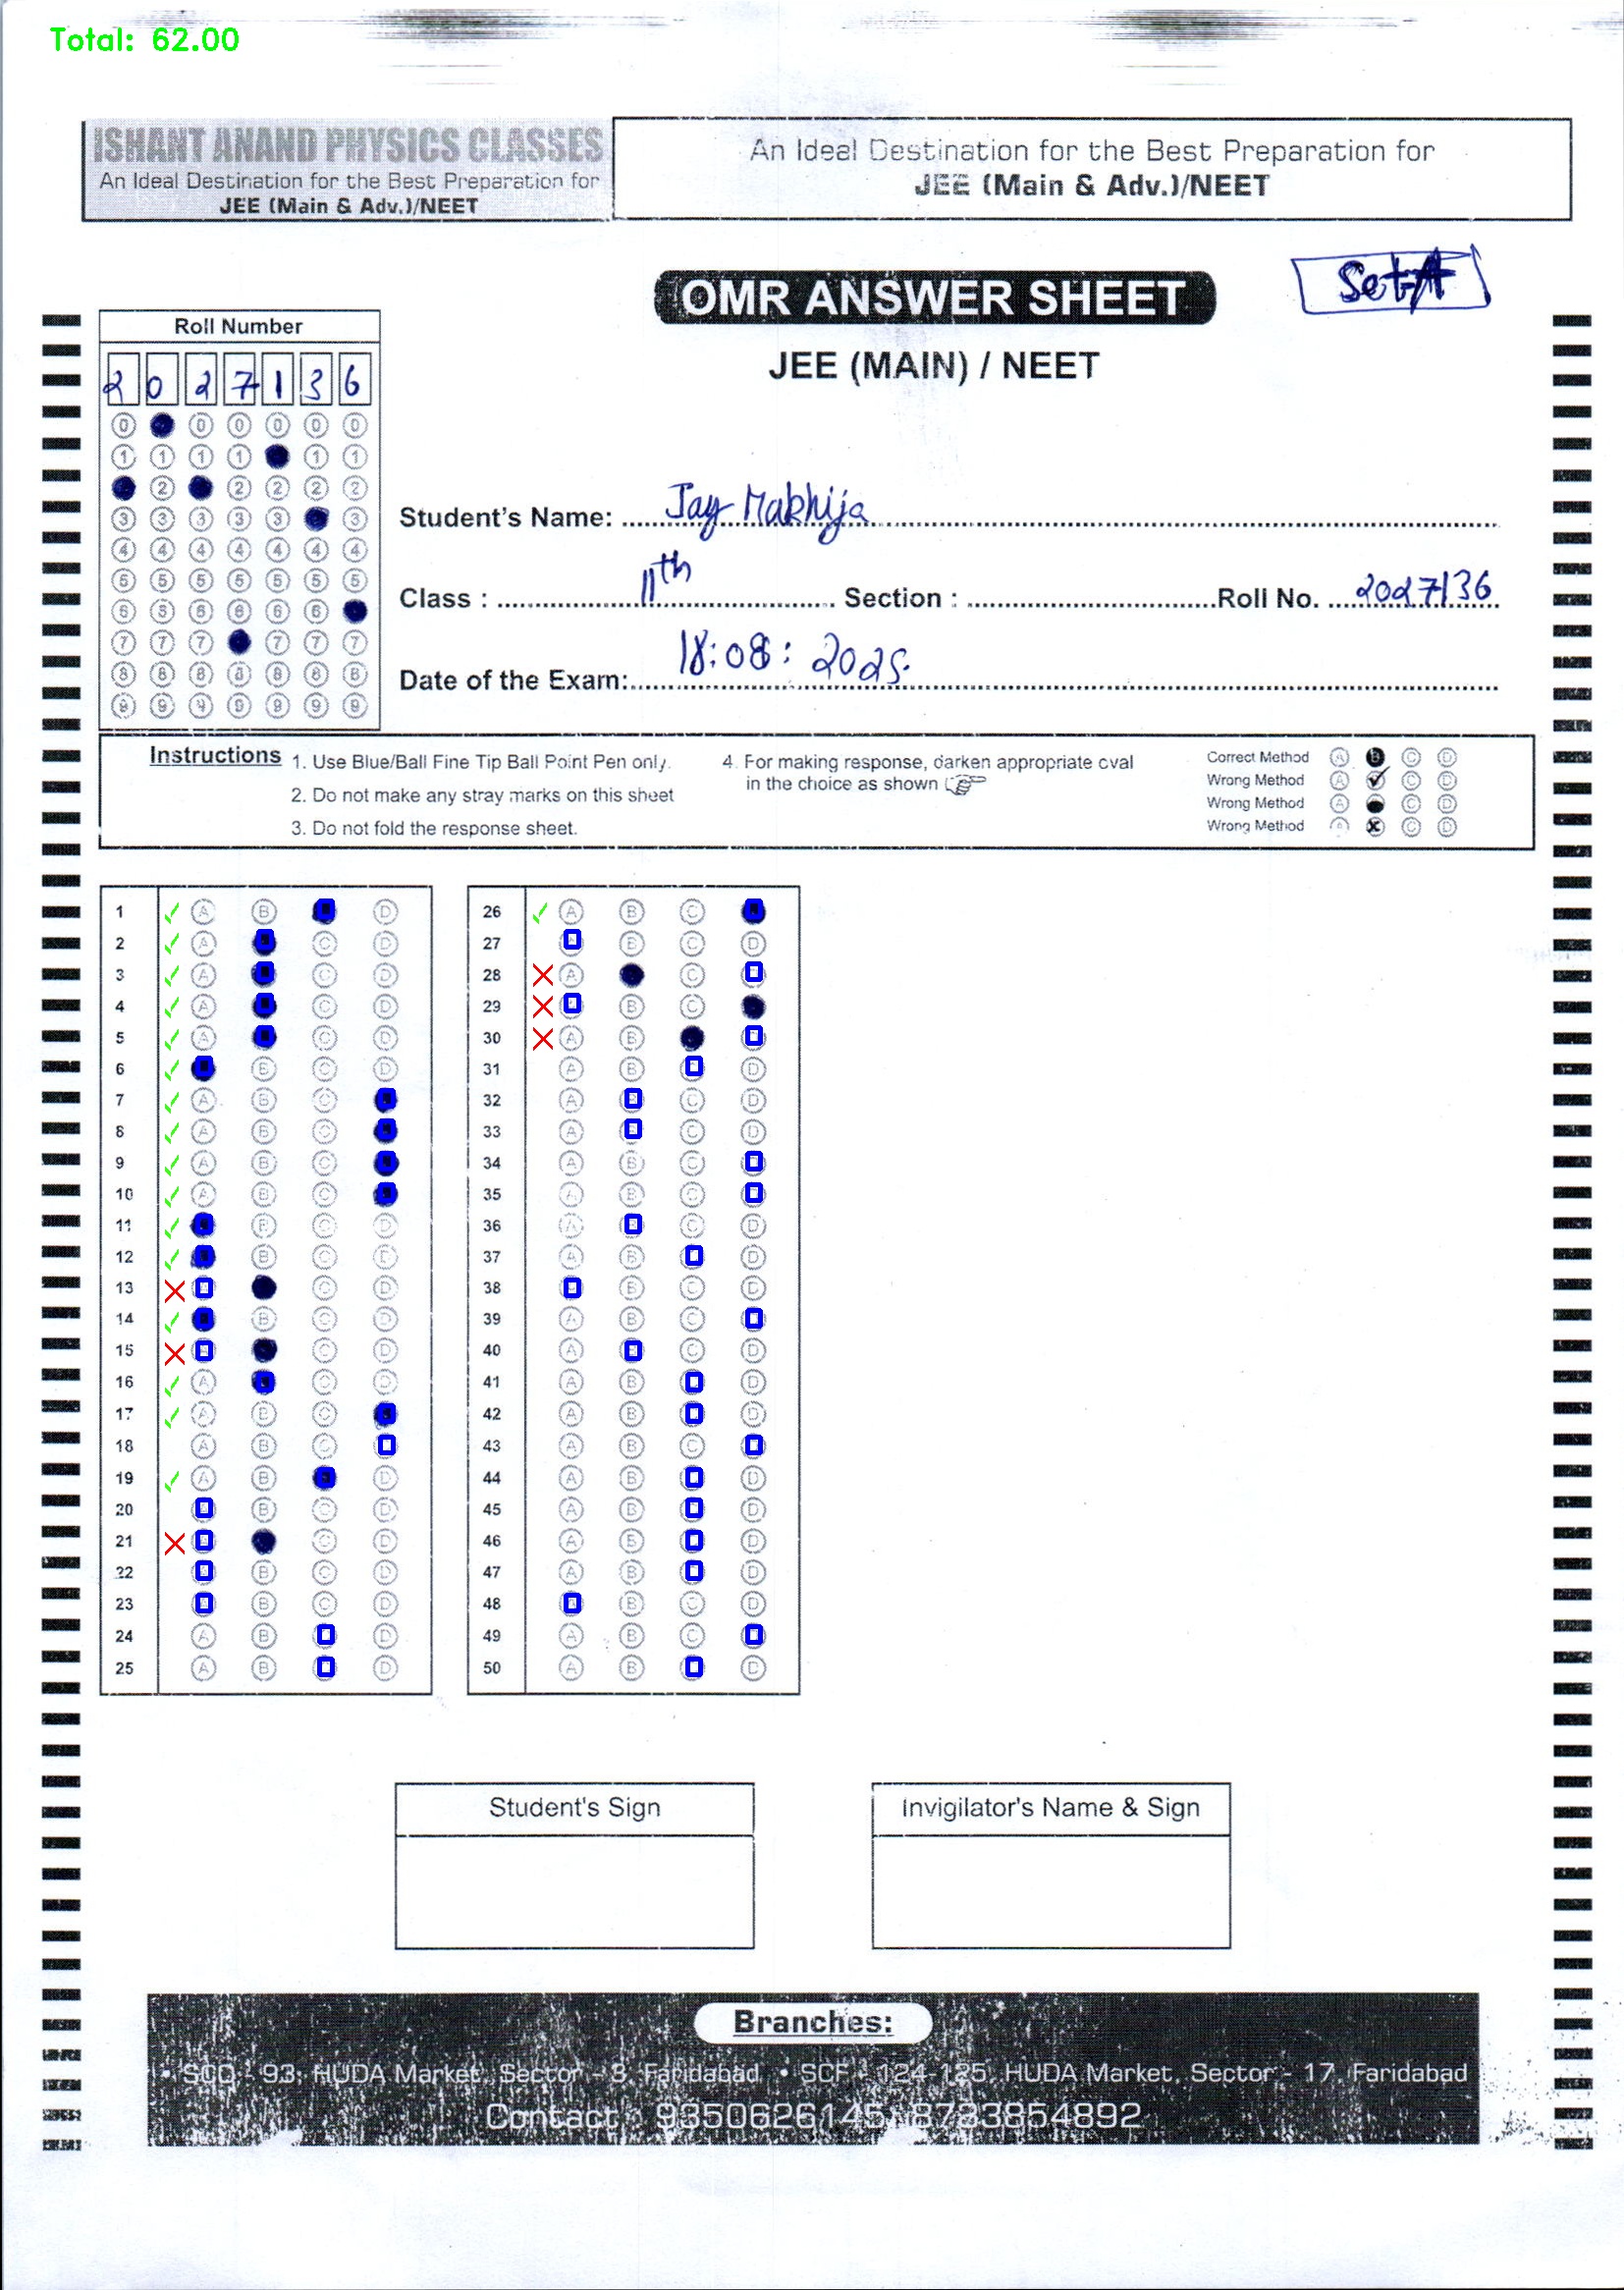 Total: 62.00
ISHANT ANAND PHYSICS CLASSES
An Ideal Destination for the Best Preparation for
JEE (Main & Adv.)/NEET
An Ideal Destination for the Best Preparation for
JEE (Main & Adv.)/NEET
Set-A
OMR ANSWER SHEET
JEE (MAIN) / NEET
Roll Number
2 0 2 7 1 3 6
0 0 0 0 0 0
1 1 1 1 1 1
2 2 2 2 2
3 3 3 3 3 3
4 4 4 4 4 4 4
5 5 5 5 5 5 5
6 6 6 6 6 6
7 7 7 7 7 7
8 8 8 8 8 8 8
9 9 9 9 9 9 9
Student's Name: Jay Makhija
Class : 11th Section : Roll No. 2027136
Date of the Exam: 18:08: 2025.
Instructions
1. Use Blue/Ball Fine Tip Ball Point Pen only.
2. Do not make any stray marks on this sheet
3. Do not fold the response sheet.
4. For making response, darken appropriate oval
in the choice as shown
Correct Method A B C D
Wrong Method A C D
Wrong Method A C D
Wrong Method A C D
1 A B D
2 A C D
3 A C D
4 A C D
5 A C D
6 B C D
7 A B C
8 A B C
9 A B C
10 A B C
11 B C D
12 B C D
13 C D
14 B C D
15 C D
16 A C D
17 A B C
18 A B C
19 A B D
20 B C D
21 C D
22 B C D
23 B C D
24 A B D
25 A B D
26 A B C
27 B C D
28 A C
29 B C
30 A B
31 A B D
32 A C D
33 A C D
34 A B C
35 A B C
36 A C D
37 A B D
38 B C D
39 A B C
40 A C D
41 A B D
42 A B D
43 A B C
44 A B D
45 A B D
46 A B D
47 A B D
48 B C D
49 A B C
50 A B D
Student's Sign
Invigilator's Name & Sign
Branches:
• SCO - 93, HUDA Market, Sector - 8, Faridabad • SCF - 124-125, HUDA Market, Sector - 17, Faridabad
Contact : 9350626145, 8723854892